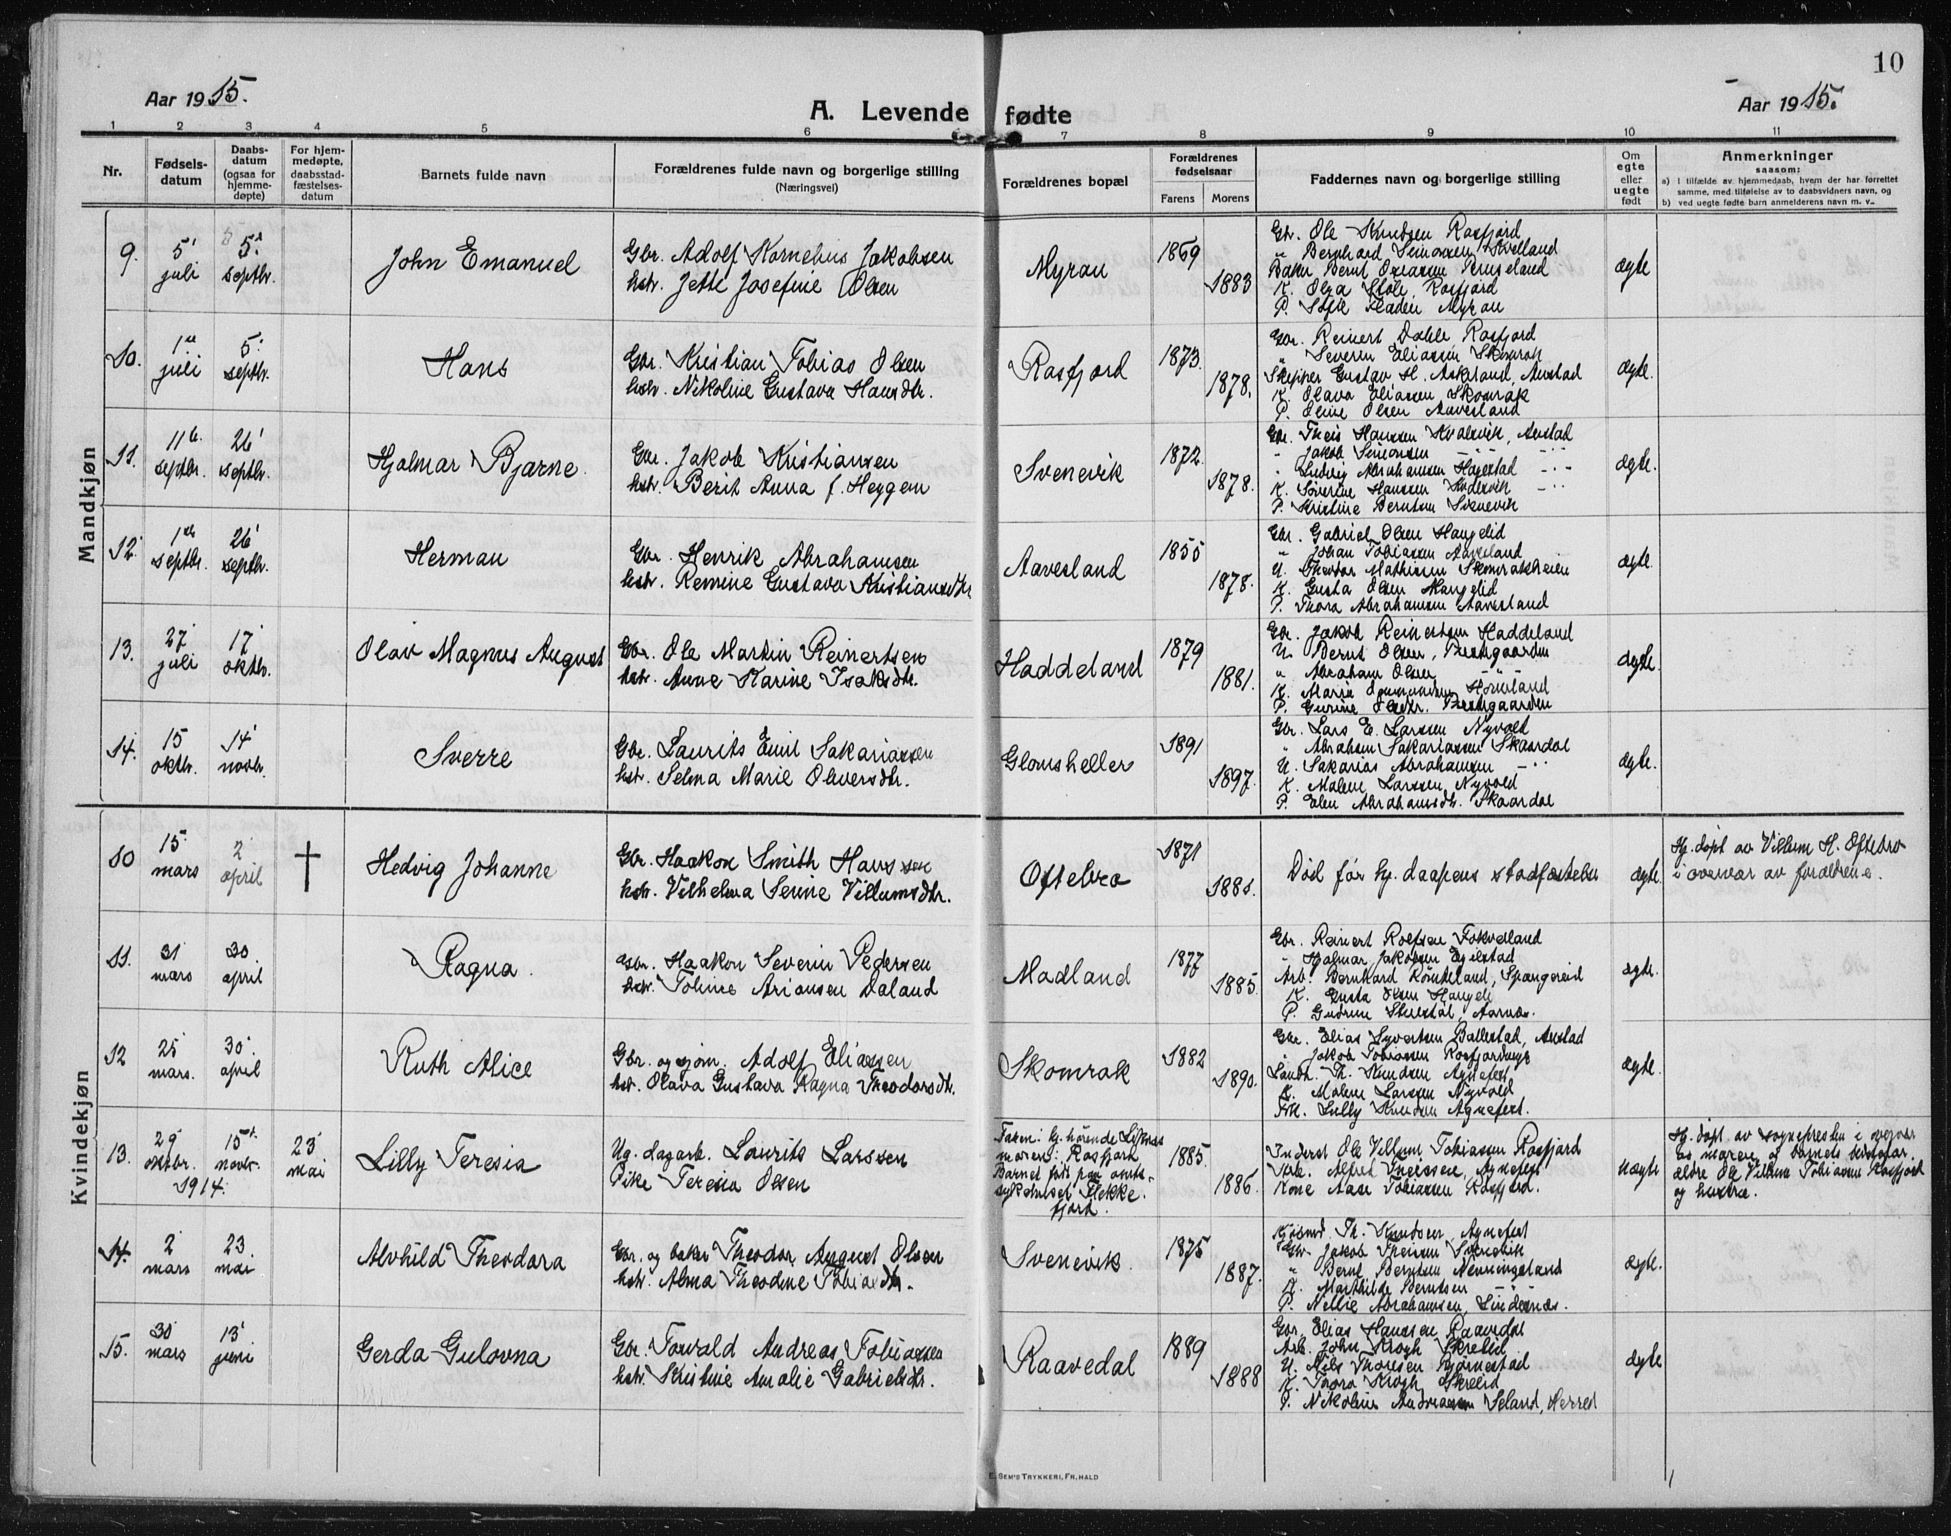 10
Aar 1915.
A. Levende fødte
Aar 1915.
1 2 3 4 5 6 7 8 9 10 11
Nr.
Fødsels-
datum
Daabs-
datum
(ogsaa for
hjemme-
døpte)
For hjem-
medøpte,
daabsstad-
fæstelses-
datum
Barnets fulde navn
Forældrenes fulde navn og borgerlige stilling
(Næringsvei)
Forældrenes bopæl
Forældrenes
fødselsaar
Farens Morens
Faddernes navn og borgerlige stilling
Om
egte
eller
uegte
født
Anmerkninger
saasom:
a) i tilfælde av hjemmedaab, hvem der har forrettet
samme, med tilføielse av to daabsvidners navn, og
b) ved uegte fødte barn anmelderens navn m. v.
Mandkjøn
9.
5 juli
5. septbr.
John Emanuel
Gbr. Adolf Kornelius Jakobsen
hstr. Jette Josefine Olsen
Myran
1869
1883
Gbr. Ole Knudsen Rosfjord
" Bernhard Simonsen Kvelland
K. Olga Stöle Rosfjord
ægte
10.
1 juli
5. septbr.
Hans
Gbr. Kristian Tobias Olsen
hstr. Nikoline Gustava Hansdtr.
Rosfjord
1873.
1878.
Gbr. Reinert Dahle Rosfjord
" Severin Eliassen Skomrak
Skipper Gustav H. Askeland, Austad
K. Olava Eliassen Skomrak
P. Oline Olsen Aaversland
ægte.
11.
11 septbr.
26 septbr.
Hjalmar Bjarne.
Gbr. Jakob Kristiansen
hstr. Berit Anna f. Heggem
Svenevik
1872.
1878.
Gbr. Theis Hanssen Kvalsvik, Austad
" Jakob Simonsen
" Ludvig Abrahamsen Hagestad
K. Severine Hanssen Kvalsvik
P. Kristine Berntsen Svenevik
ægte.
12.
1 septbr.
26 septbr.
Herman
Gbr. Henrik Abrahamsen
hstr. Remine Gustava Kristiansdtr
Aaversland
1855
1878.
Gbr. Gabriel Olsen Hangelid
" Johan Tobiassen Aaversland
U. Theodor Mathissen Skomrakheien
K. Gusta Olsen Hangelid
P. Thora Abrahamsen Aaversland
ægte.
13.
27 juli
17 oktbr.
Olav Magnus August
Gbr. Ole Martin Reinertsen
hstr. Anne Karine Isaksdtr.
Haddeland
1879
1881.
Gbr. Jakob Reinertsen Haddeland
U. Bernt Olsen, Prestgaarden
" Abraham Olsen
P. Gurine Olsdtr. Prestgaarden
ægte.
14.
15 oktbr.
14 novbr.
Sverre
Gbr. Laurits Emil Sakariassen
hstr. Selma Marie Oliversdtr.
Glomsheller
1891
1897.
Gbr. Lars E. Larssen Nyvold
" Abraham Sakariassen Skaardal
U. Sakarias Abrahamsen
K. Malene Larssen, Nyvold
P. Elen Abrahamsdtr. Skaardal
ægte.
Kvindekjøn
10
15. mars
2 april
†
Hedvig Johanne
Gbr. Haakon Smith Hanssen
hstr. Vilhelma Serine Villumsdtr.
Oftebro
1871
1881.
Död för hj. daapens stadfæstelse
ægte.
Hj. döpt av Villum H. Oftebro
i overvær av forældrene.
11.
31 mars
30. april
Ragna.
Gbr. Haakon Severin Pedersen
hstr. Toline Ariansen Daland
Madland
1877
1885.
Gbr. Reinert Rolfsen Fokveland
" Hjalmar Jakobsen Egilstad
Arb. Bernhard Römteland, Spangereid
K. Gusta Olsen
ægte.
12
25 mars.
30. april
Ruth Alice
Gbr. og sjöm. Adolf Eliassen
hstr. Olava Gustava Ragna Theodorsdtr.
Skomrak
1882
1890.
Gbr. Elias Syvertsen Ballestad, Austad
" Jakob Tobiassen
Landh. Th. Knudsen Agnefest
K. Malene Larssen Nyvold
Frk. Lully Knudsen Agnefest.
ægte.
13.
29 oktbr. 1914.
15. novbr.
23 mai
Lilly Teresia
Ug. dagarb. Laurits Larssen
Pike Teresia Olsen
Faren: hj. hörende Liknes
moren: Rosfjord
Barnet født paa amts-
sykehuset Flekke-
fjord.
1885.
1886.
Inderst Ole Villum Tobiassen Rosfjord
Arb. Alfred Iversen, Agnefest
Kone Aase Tobiassen Rosfjord.
uægte
Hj. döpt av sognepresten i overvær
av moren og barnets bestefor-
ældre Ole Villum Tobiassen Rosfjord
og hustru.
14.
2 mars
23. mai
Alvhild Theodora
Gbr. og baker Theodor August Olsen
hstr. Alma Theodine Tobiasdtr.
Svenevik.
1875
1887.
Kjöbmd. Th. Knudsen, Agnefest
Gbr. Jakob Theisen Svenevik
" Bernt Berntsen Nenningsland
K. Mathilde Berntsen
P. Nellie Abrahamsen, Lindesnæs.
ægte.
15.
30 mars
13 juni
Gerda Gulovna
Gbr. Torvald Andreas Tobiassen
hstr. Kristine Amalie Gabrielsdtr.
Raavedal
1889
1888
Gbr. Elias Hanssen Raavedal
Arb. John Krogh Skrelid
U. Nils Thoresen Bjørnestad
K. Thora Krogh Skrelid
P. Nikoline Andreassen Seland, Herred
ægte
E. SEM'S TRYKKERI, FR.HALD